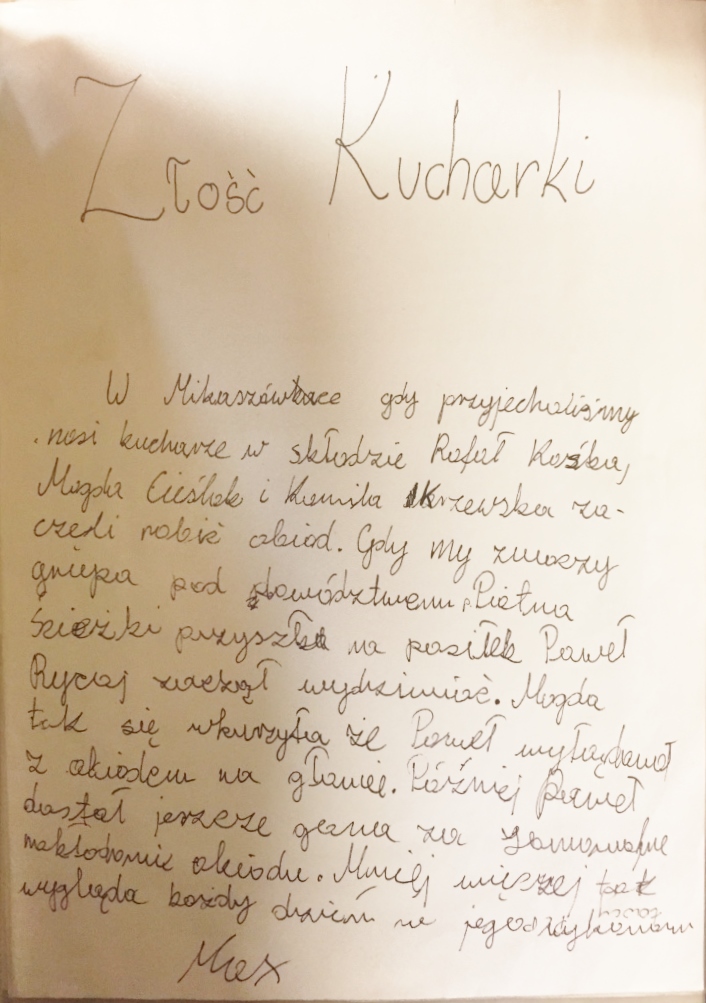 Złość Kucharki
W Mikaszówkace gdy przyjechaliśmy
nasi kucharze w składzie Rafał Kośka,
Magda Cieślak i Kamila Krzewska za-
czeli robić obiad. Gdy my
grupa pod dowództwem Piotra
Ścieżki przyszła na posiłek Paweł
Rycaj zaczął wydziwiać. Magda
tak się wkurzyła że Paweł wylądował
z obiadem na głowie. Później Paweł
dostał jeszcze za
obiadu. Mniej więcej tak
wygląda każdy dzień w jego wykonaniu
Max